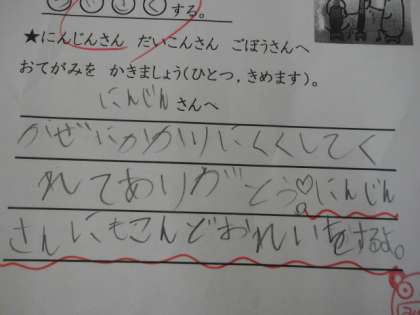 する。
★にんじんさん だいこんさん ごぼうさんへ
おてがみを かきましょう(ひとつ,きめます)。
にんじんさんへ
かぜにかかりにくくしてく
れてありがとう♡にんじん
さんにもこんどおれいをするよ。